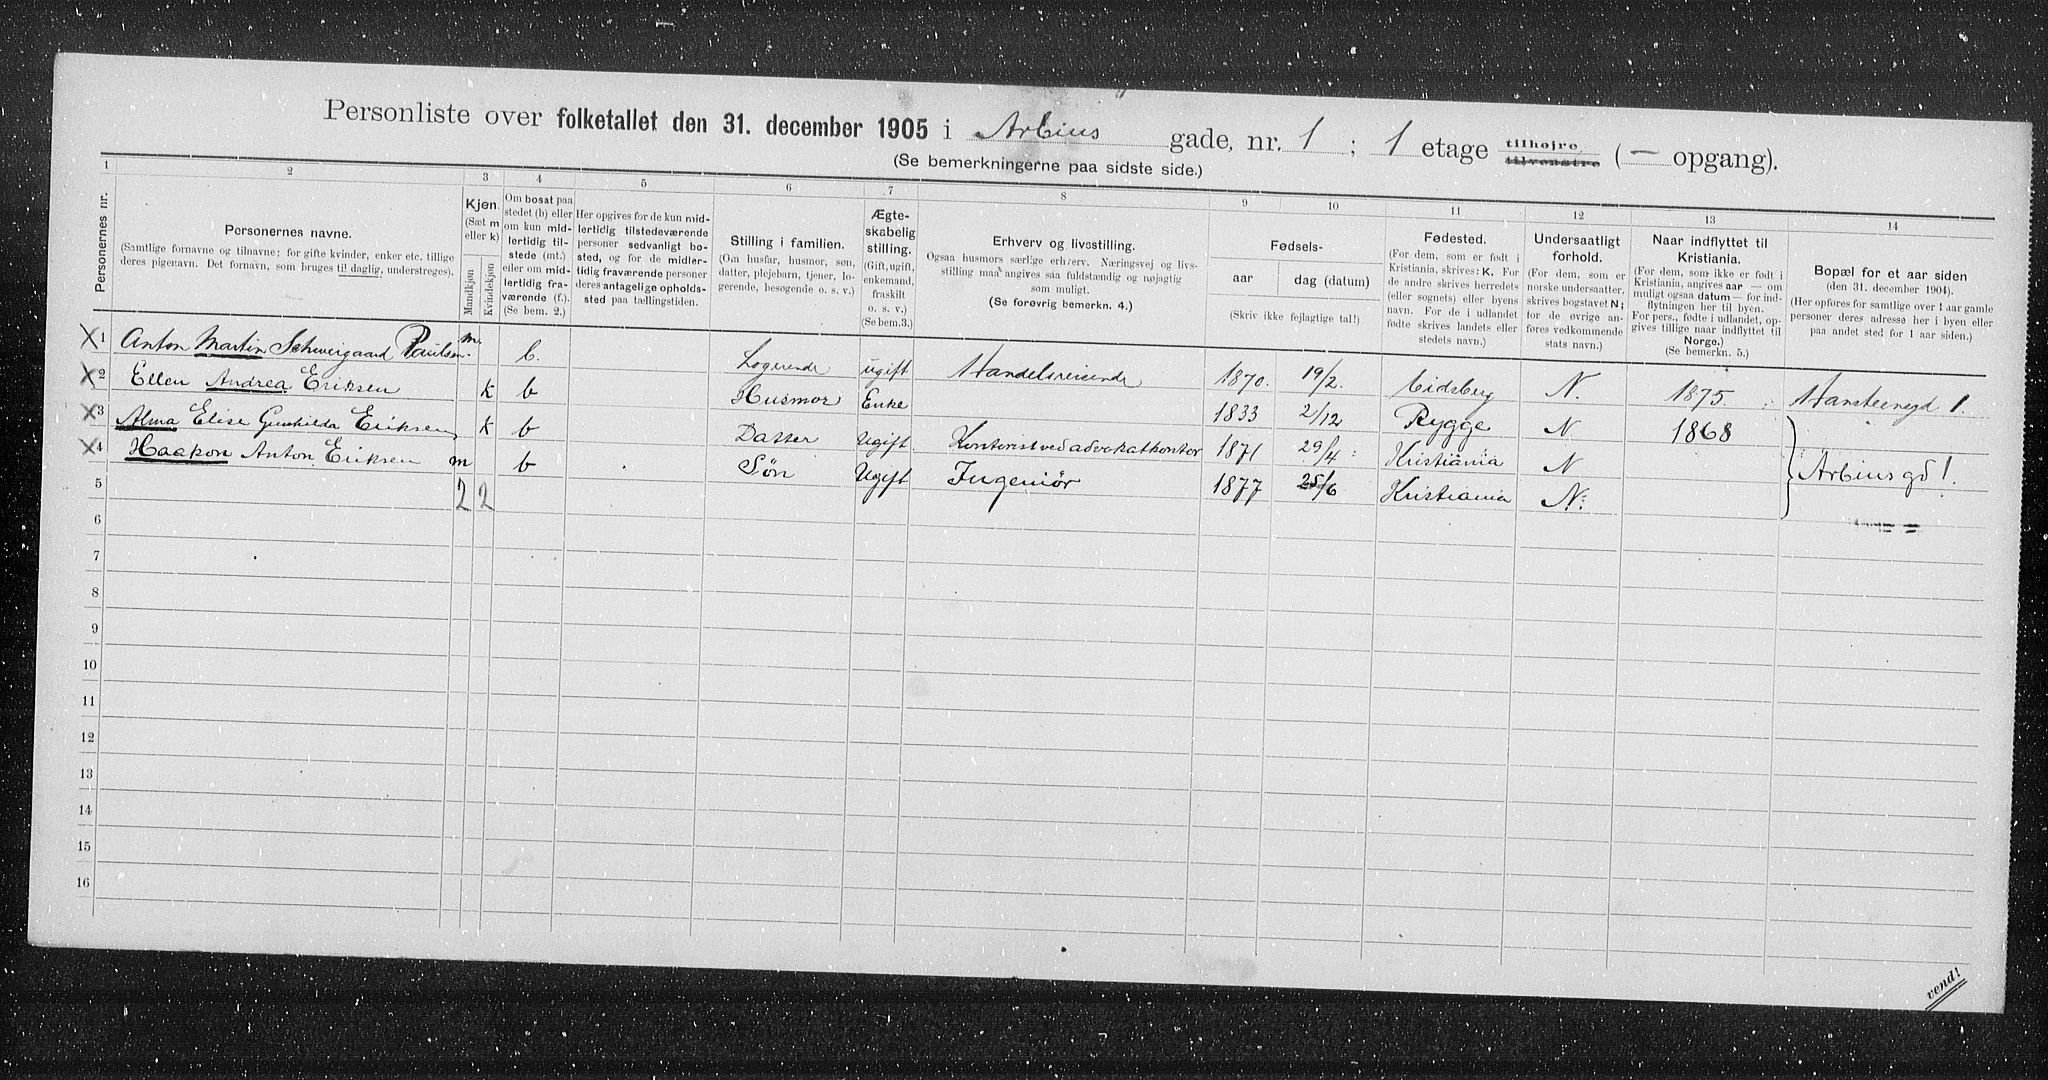 Personliste over folketallet den 31. december 1905 i Arbins gade, nr. 1 ; 1 etage tilhøjre tilvenstre (— opgang).
(Se bemerkningerne paa sidste side.)
1 2 3 4 5 6 7 8 9 10 11 12 13 14
Personernes nr.
Personernes navne.
(Samtlige fornavne og tilnavne; for gifte kvinder, enker etc. tillige
deres pigenavn. Det fornavn, som bruges til daglig, understreges).
Kjøn.
(Sæt m
eller k)
Mandkjøn
Kvindekjøn
Om bosat paa
stedet (b) eller
om kun mid-
lertidig til-
stede (mt.)
eller om mid-
lertidig fra-
værende (f.).
(Se bem. 2.)
Her opgives for de kun mid-
lertidig tilstedeværende
personer sedvanligt bo-
sted, og for de midler-
tidig fraværende personer
deres antagelige opholds-
sted paa tællingstiden.
Stilling i familien.
(Om husfar, husmor, søn,
datter, plejebarn, tjener, lo-
gerende, besøgende o. s. v.)
Ægte-
skabelig
stilling.
(Gift, ugift,
enkemand,
fraskilt
o. s. v.)
(Se bem.3.)
Erhverv og livsstilling.
Ogsaa husmors særlige erhverv. Næringsvej og livs-
stilling maa angives saa fuldstændig og nøjagtig
som muligt.
(Se forøvrig bemerkn. 4.)
Fødsels-
aar
dag (datum)
(Skriv ikke fejlagtige tal!)
Fødested.
(For dem, som er født i
Kristiania, skrives: K. For
de andre skrives herredets
(eller sognets) eller byens
navn. For de i udlandet
fødte skrives landets eller
stedets navn.)
Undersaatligt
forhold.
(For dem, som er
norske undersaatter,
skrives bogstavet N;
for de øvrige an-
føres vedkommende
stats navn.)
Naar indflyttet til
Kristiania.
(For dem, som ikke er født i
Kristiania, angives aar — om
muligt ogsaa datum — for ind-
flytningen her til byen.
For pers., fødte i udlandet, op-
gives tillige naar indflyttet til
Norge.)
(Se bemerkn. 5.)
Bopæl for et aar siden
(den 31. december 1904).
(Her opføres for samtlige over 1 aar gamle
personer deres adresse her i byen eller
paa andet sted for 1 aar siden.)
X 1 Anton Martin Schweigaard Paulsen m. b. Logerende ugift Handelsreisende 1870. 19/2. Eidsberg N. 1875. Hansteensgd 1.
X 2 Ellen Andrea Eriksen k b Husmor Enke 1833 2/12 Rygge N 1868
X 3 Alma Elise Gunhilda Eriksen k b Datter Ugift Kontorist ved advokatkontor 1871 29/4 Kristiania N Arbinsgd 1.
X 4 Haakon Anton Eriksen m b Søn Ugift Ingeniør 1877 25/6 Kristiania N.
5 2 2
6
7
8
9
10
11
12
13
14
15
16
vend!